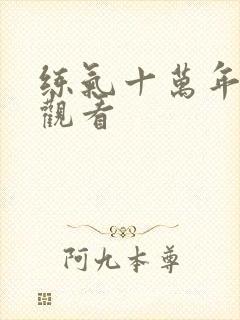 练氣十萬年
觀看
阿九本尊